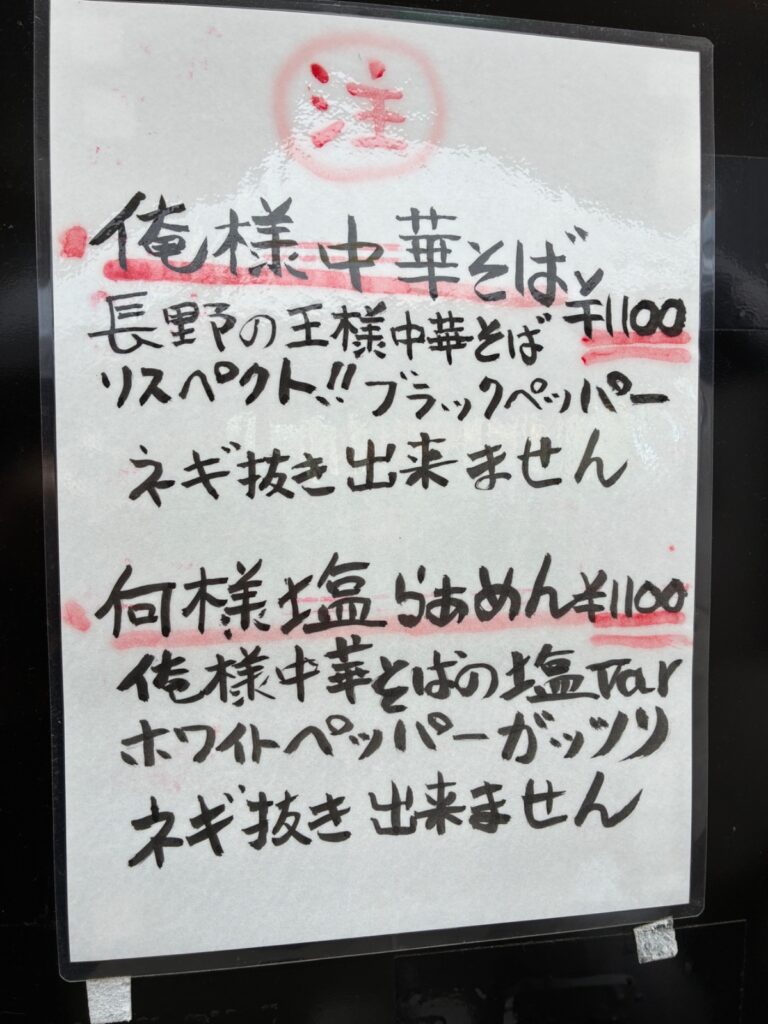 注
俺様中華そば
¥1100
長野の王様中華そば
リスペクト!!ブラックペッパー
ネギ抜き出来ません
何様塩らぁめん¥1100
俺様中華そばの塩var
ホワイトペッパーガッツリ
ネギ抜き出来ません